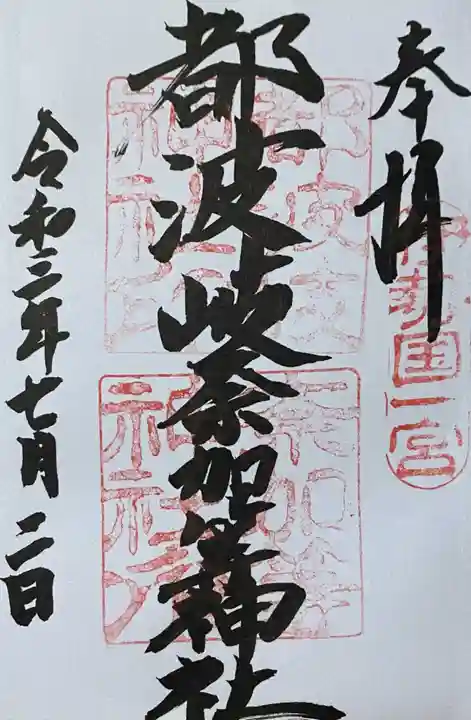 奉拝
伊勢国一宮
都波岐奈加等神社
都波岐神社
奈加等神社
令和三年七月二日